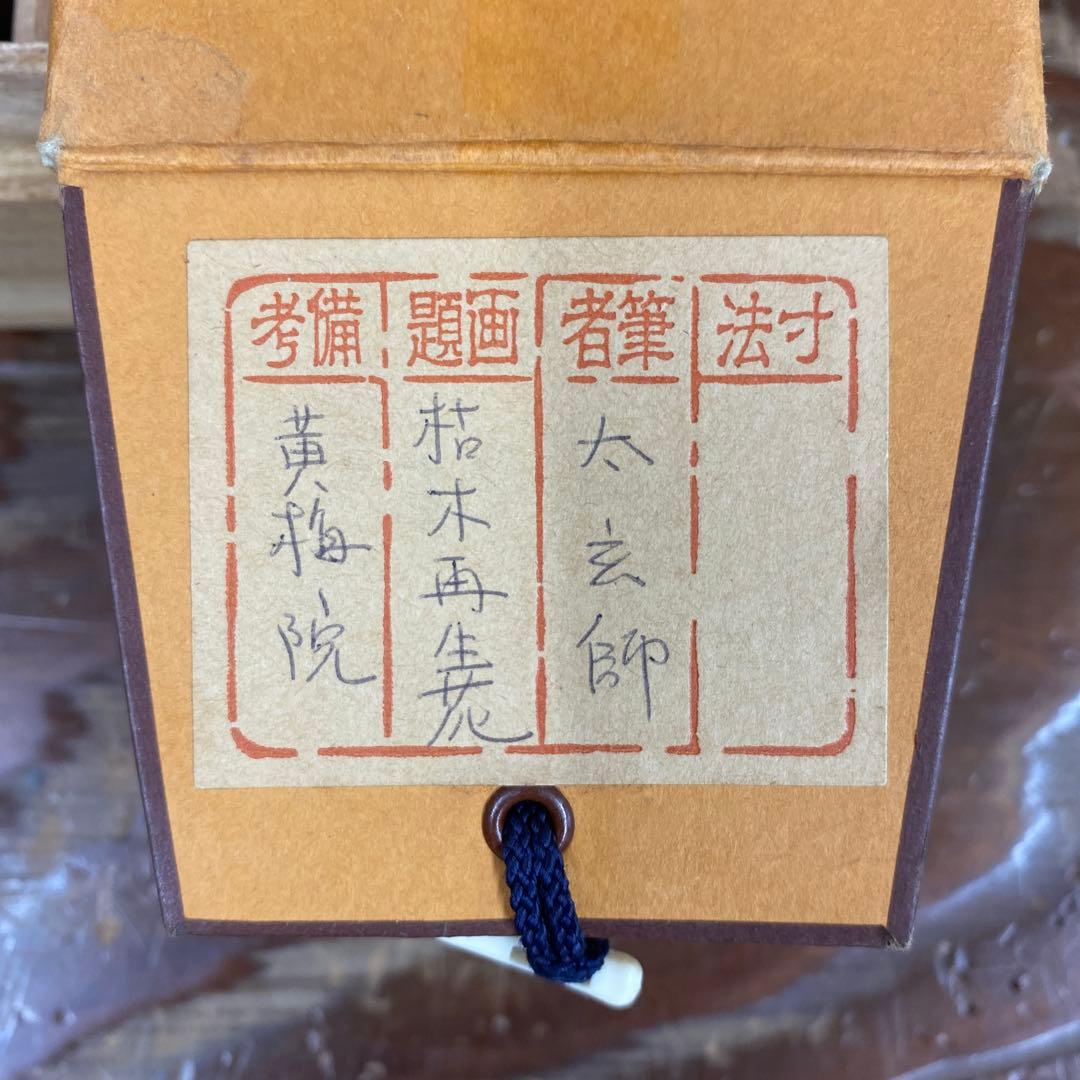 寸法
筆者
太玄師
画題
枯木再生花
備考
黄梅院